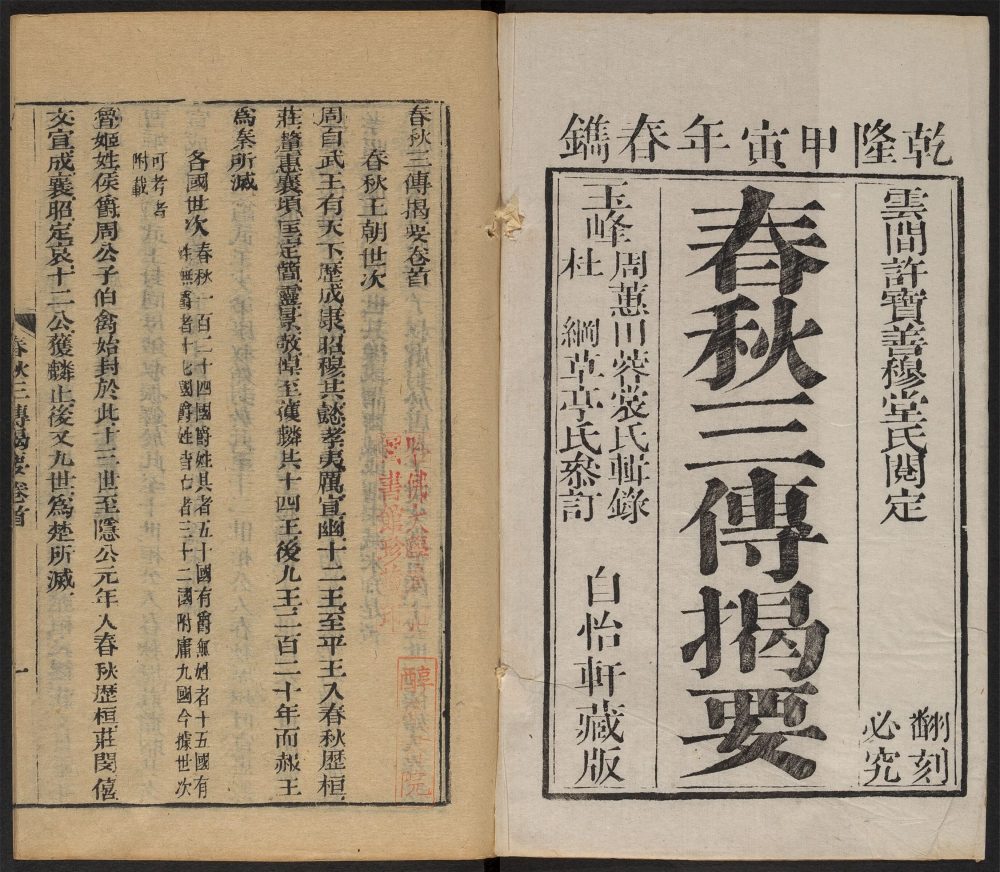 乾隆甲寅年春鐫
雲間許寶善穆堂氏閱定
翻刻
必究
春秋三傳揭要
玉峰
周蕙田蓉裳氏輯錄
杜綱草亭氏叅訂
自怡軒藏版
春秋三傳揭要卷首
春秋王朝世次
周自武王有天下歷成康昭穆共懿孝夷厲宣幽十二王至平王入春秋歷桓
莊釐惠襄頃匡定簡靈景敬悼至獲麟共十四王後九王二百二十年而赧王
為秦所滅
各國世次
春秋一百二十四國爵姓具者五十國有爵無姓者十五國有
姓無爵者十七國爵姓皆亡者三十二國附庸九國今據世次
可考者
附載
魯姬姓侯爵周公子伯禽始封於此十三世至隱公元年入春秋歷桓莊閔僖
文宣成襄昭定哀十二公獲麟止後又九世為楚所滅
春秋三傳揭要卷首
一